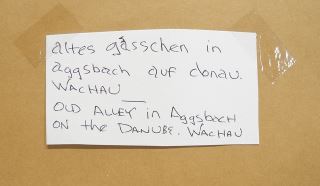 altes gässchen in
aggsbach auf donau.
WACHAU
OLD ALLEY in Aggsbach
ON the DANUBE. WACHAU